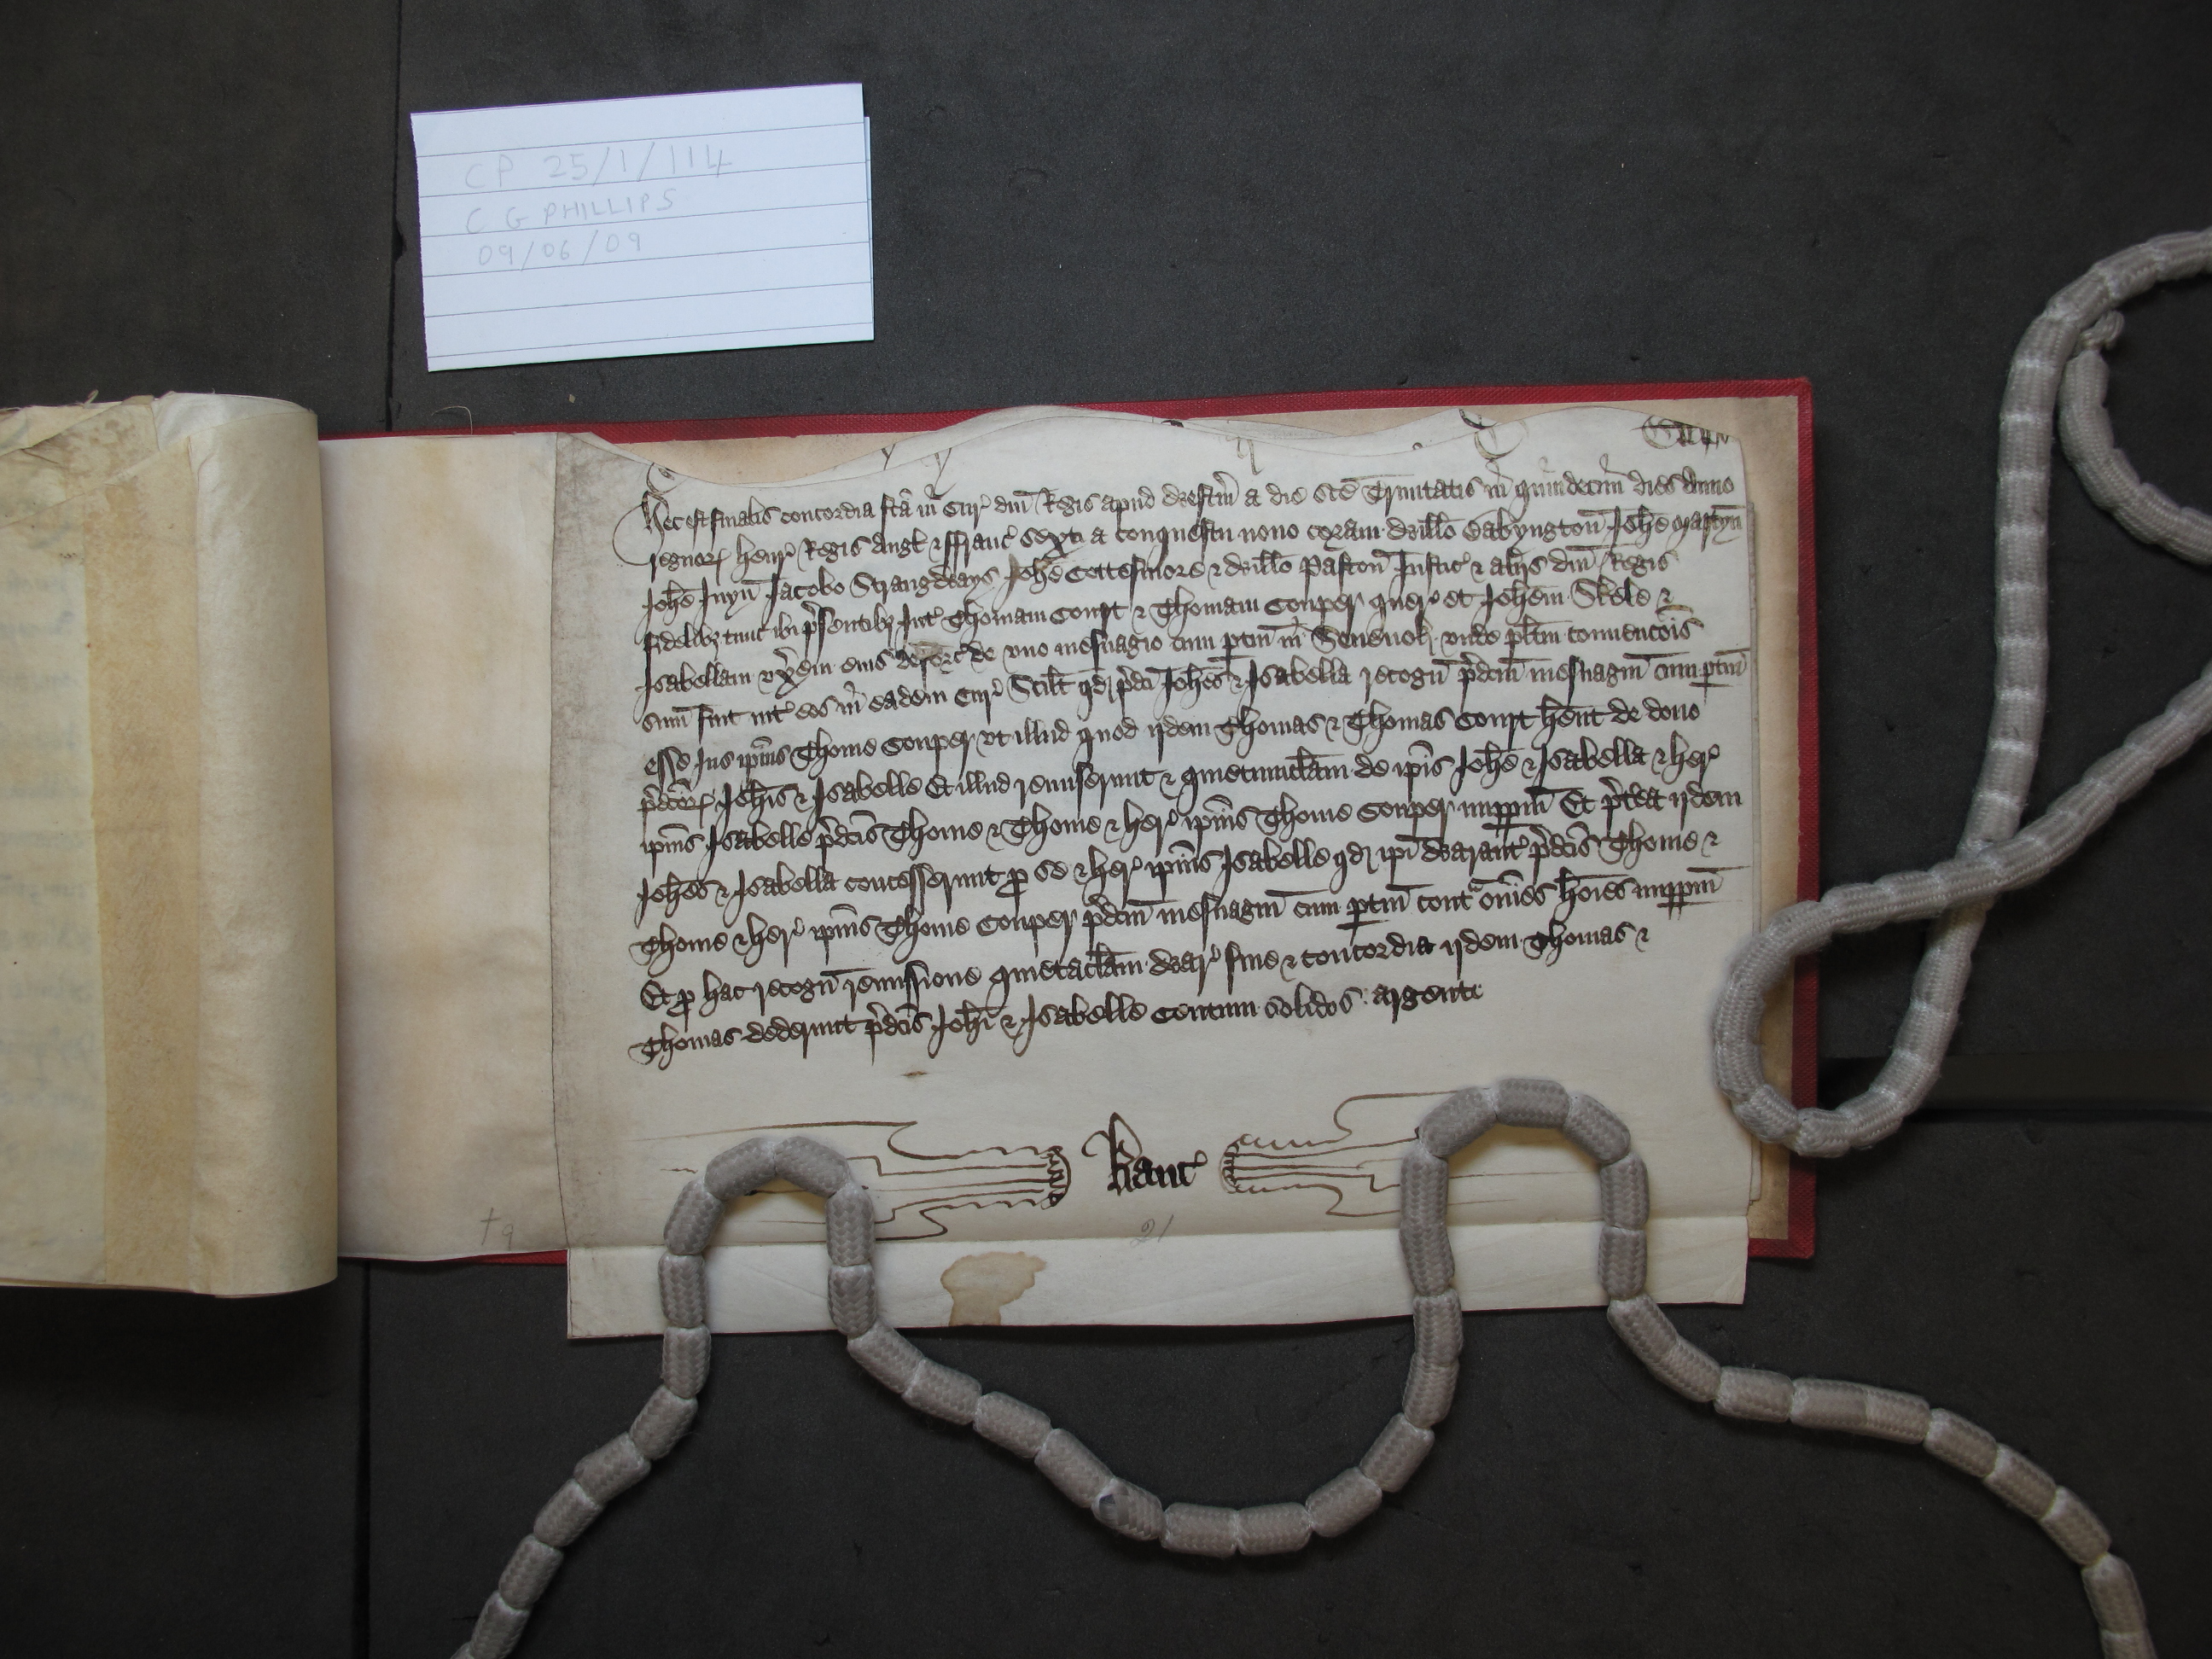 CP 25/1/114
C G PHILLIPS
09/06/09
Hec est finalis concordia fcā in Cur' dn̄i Regis apud Westm̄ a die sc̄e Trinitatis in quindecim dies Anno
regnoꝝ Henr' Regis Angl' & Franc' sexti a conquestu nono coram Will̄o Babyngton̄ Joh̄e Martyn̄
Joh̄e Juyn̄ Jacobo Strangways Joh̄e Cottesmore & Will̄o Paston̄ Justic' & alijs dn̄i Regis
fidelibꝫ tunc ibi p̄sentibꝫ Int' Thomam Court & Thomam Couper quer' et Joh̄em Skele &
Isabellam vx̄em eius deforc' de vno mesuagio cum ptin̄ in Sevenok' vnde pl̄itm conuenc̄ois
sum̄ fuit int' eos in eadem Cur' Scil̄t qd' p̄dc̄i Joh̄es & Isabella recogn̄ p̄dc̄m mesuagiu cum ptin̄
esse Jus ip̄ius Thome Couper vt illud quod ijdem Thomas & Thomas Court h̄ent de dono
p̄dc̄oꝝ Joh̄is & Isabelle Et illud remiserunt & quietumclam̄ de ip̄is Joh̄e & Isabella & her'
ip̄ius Isabelle p̄dc̄is Thome & Thome & her' ip̄ius Thome Couper imppm̄ Et p̄t'ea ijdem
Joh̄es & Isabella concesserunt ꝓ se & her' ip̄ius Isabelle qd' ip̄i Warant' p̄dc̄is Thome &
Thome & her' ip̄ius Thome Couper p̄dc̄m mesuagiu cum ptin̄ cont'a om̄es hōies imppm̄
Et ꝓ hac recogn̄ remissione quietaclam̄ War' fine & concordia ijdem Thomas &
Thomas dederunt p̄dc̄is Joh̄i & Isabelle Centum solidos argenti
Kanc'
21